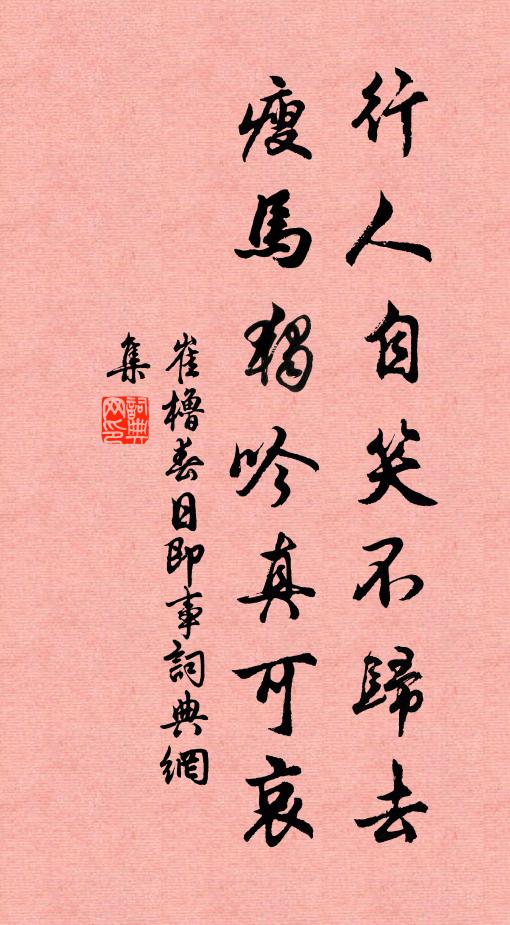 行人自笑不歸去
瘦馬獨吟真可哀
崔櫓春日即事詞典網
集
詞典網印